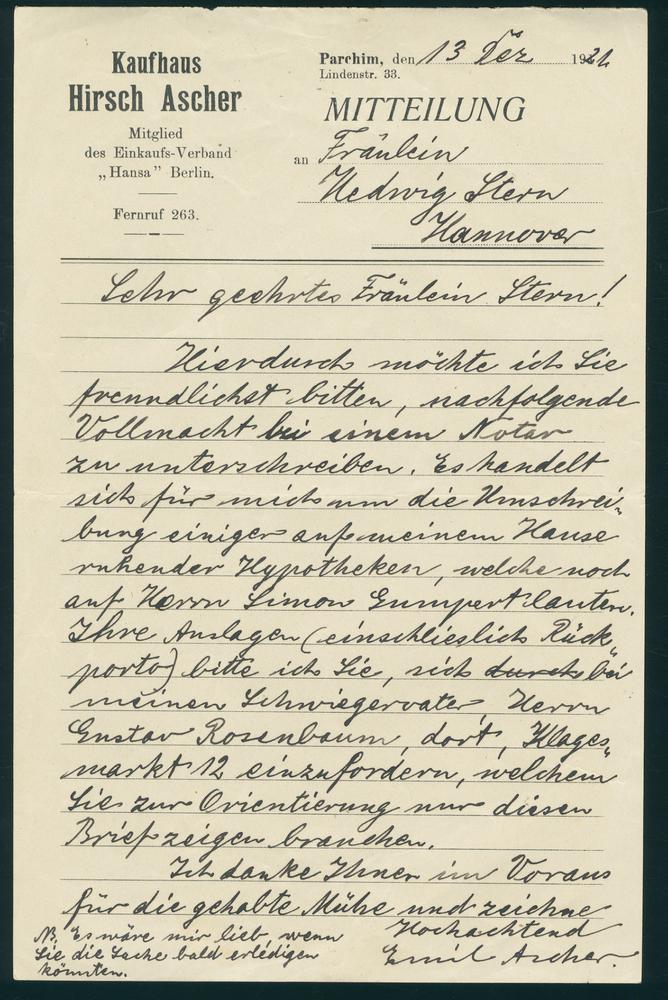 Kaufhaus
Hirsch Ascher
Mitglied
des Einkaufs-Verband
„Hansa" Berlin.
Fernruf 263.
Parchim, den 13 Dez 1921
Lindenstr. 33.
MITTEILUNG
an Fräulein
Hedwig Stern
Hannover
Sehr geehrtes Fräulein Stern!
Hierdurch möchte ich Sie
freundlichst bitten, nachfolgende
Vollmacht bei einem Notar
zu unterschreiben. Es handelt
sich für mich um die Umschrei-
bung einiger auf meinem Hause
ruhender Hypotheken, welche noch
auf Herrn Simon Gumpert lauten.
Ihre Auslagen (einschlieslich Rück-
porto) bitte ich Sie, sich durch bei
meinen Schwiegervater, Herrn
Gustav Rosenbaum, dort, Klages-
markt 12 einzufordern, welchem
Sie zur Orientierung nur diesen
Brief zeigen brauchen.
Ich danke Ihnen im Voraus
für die gehabte Mühe und zeichne
Hochachtend
Emil Ascher.
NB. Es wäre mir lieb, wenn
Sie die Sache bald erledigen
könnten.